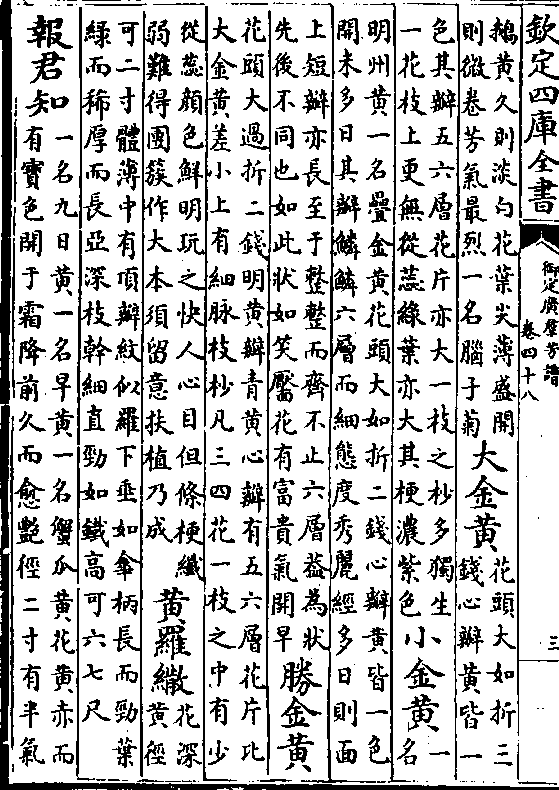 欽定四庫全書
御定廣羣芳譜
卷四十八
三
鵝黄久則淡勻花葉尖薄盛開
則微卷芳氣最烈一名腦子菊
大金黄
花頭大如折三
錢心瓣黄皆一
色其瓣五六層花片亦大一枝之杪多獨生
一花枝上更無從蕊綠葉亦大其梗濃紫色
小金黄
一
名
明州黄一名疊金黄花頭大如折二錢心瓣黄皆一色
開未多日其瓣鱗鱗六層而細態度秀麗經多日則面
上短瓣亦長至于整整而齊不止六層葢為狀
先後不同也如此狀如笑靨花有富貴氣開早
勝金黄
花頭大過折二錢明黄瓣青黄心瓣有五六層花片比
大金黄差小上有細脉枝杪凡三四花一枝之中有少
從蕊顔色鮮明玩之快人心目但條梗纖
弱難得團簇作大本須留意扶植乃成
黄羅繖
花深
黄徑
可二寸體薄中有頂瓣紋似羅下垂如傘柄長而勁葉
綠而稀厚而長亞深枝幹細直勁如鐵高可六七尺
報君知
一名九日黄一名早黄一名蟹爪黄花黄赤而
有寶色開于霜降前久而愈艷徑二寸有半氣